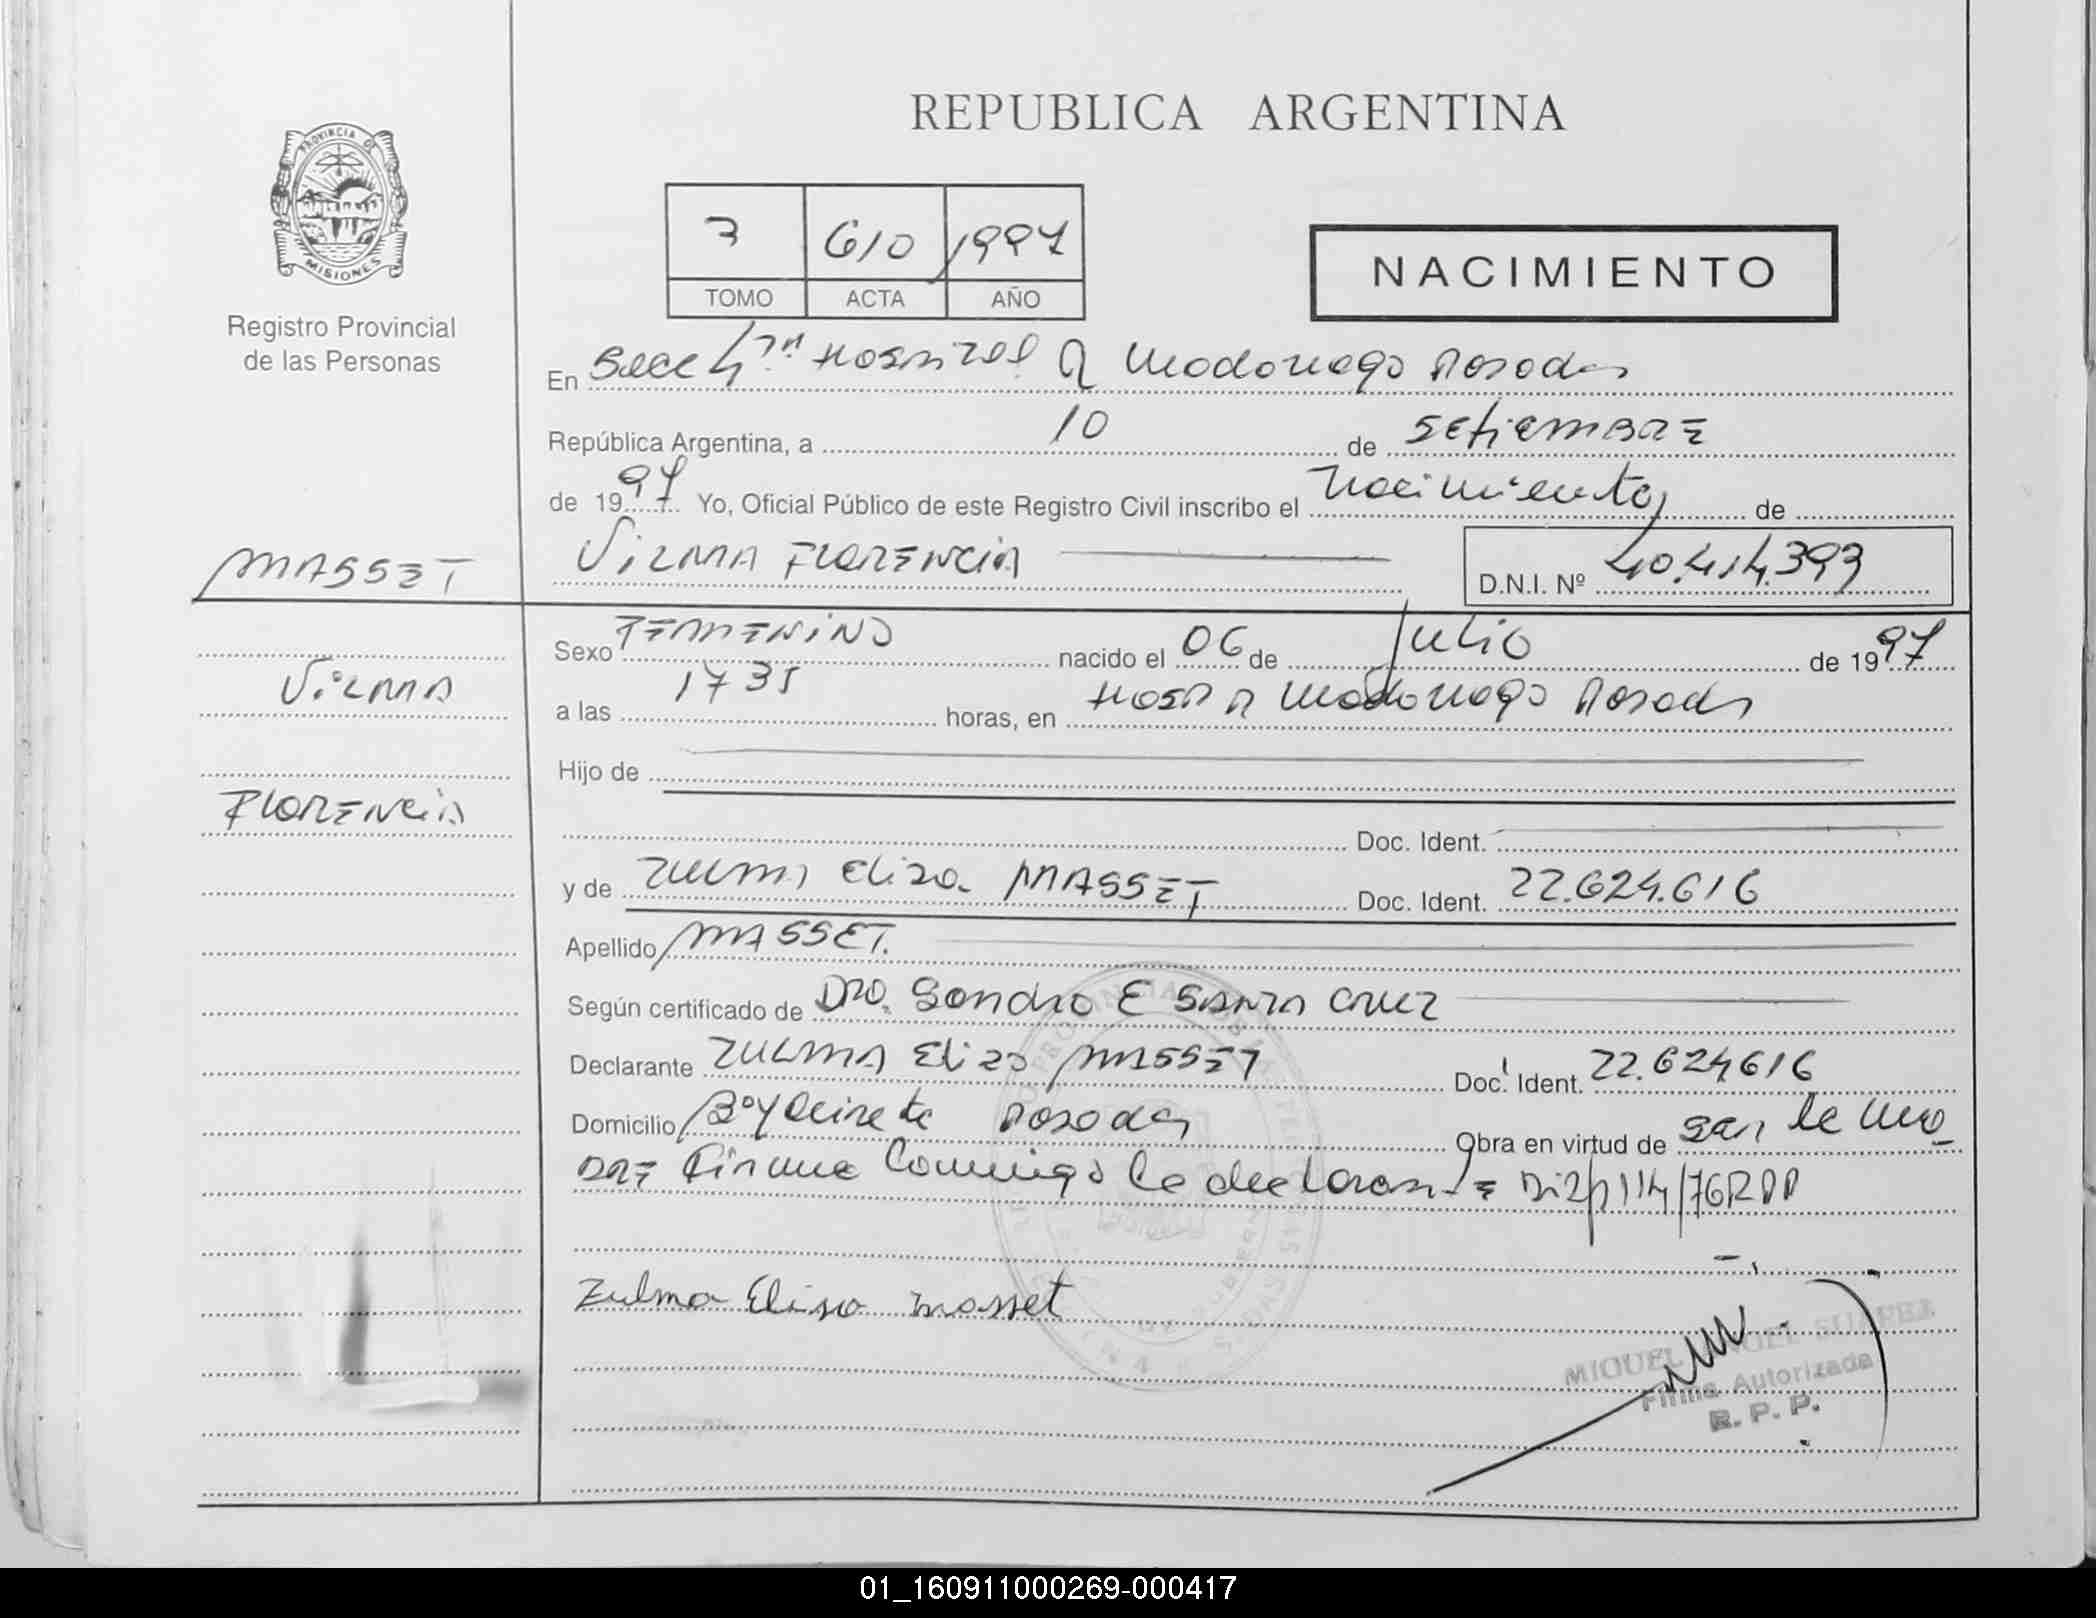 REPUBLICA ARGENTINA
PROVINCIA DE
MISIONES
Registro Provincial
de las Personas
3 610 1997
TOMO ACTA AÑO
NACIMIENTO
En Secc Hospital R Madariaga Posadas
República Argentina, a 10 de SEtiEmBRE
de 1997 Yo, Oficial Público de este Registro Civil inscribo el nacimiento de
MASSET VILMA FLORENCIA D.N.I. Nº 40.414.393
Sexo FEMENINO nacido el 06 de Julio de 1997
VILMA
a las 1735 horas, en HOSP R Madariaga Posadas
Hijo de
FLORENCIA
Doc. Ident.
y de ZULMA Elisa MASSET Doc. Ident. 22.624.616
Apellido MASSET.
Según certificado de Dra. Sandra E SANTA CRUZ
Declarante ZULMA Elisa MASSET Doc. Ident. 22.624616
Domicilio Bº Posadas Obra en virtud de ser la ma
DRE Firma Conmigo la declarante 114/76RPP
Zulma Elisa masset
MIGUEL ANGEL SUAREZ
Firma Autorizada
R. P. P.
01_160911000269-000417